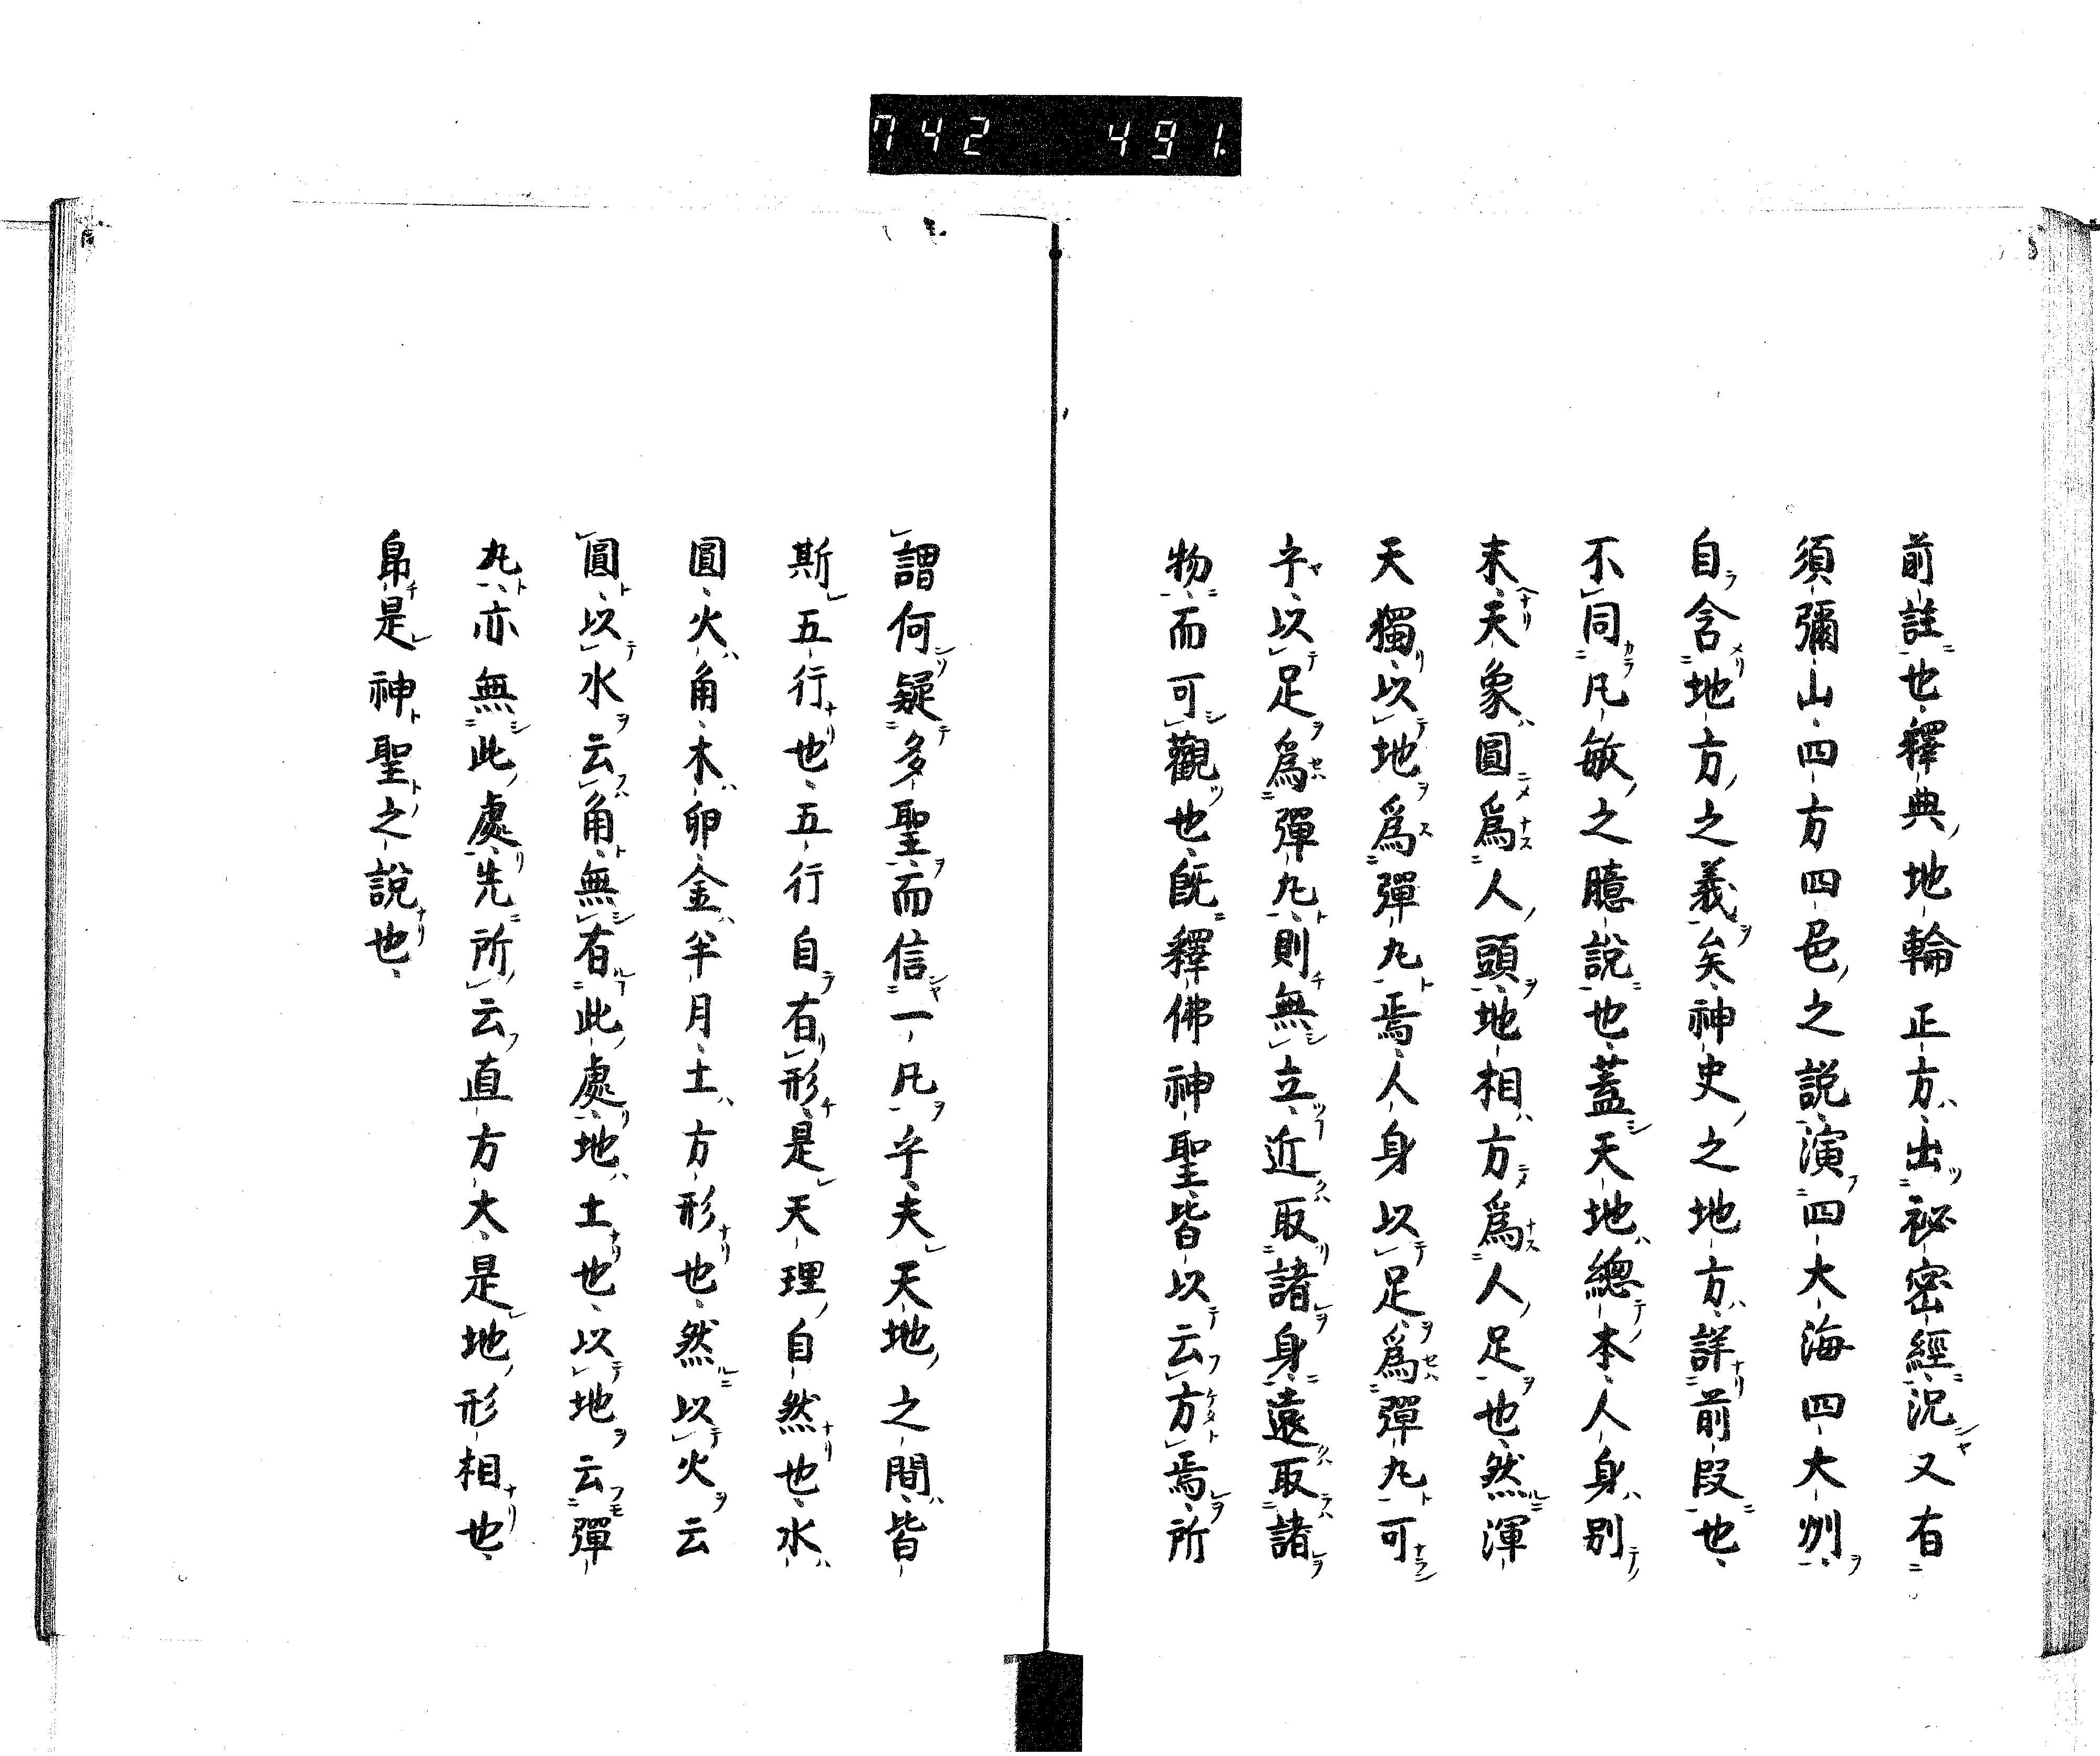 742 491.
前註也釋典地輪正方出祕密經況又有
須彌山四方四色之説演四大海四大洲
自含地方之義矣神史之地方詳前段也
不同凡敏之臆説也蓋天地總本人身別
末天象圓爲人頭地相方爲人足也然渾
天獨以地爲彈丸焉人身以足爲彈丸可
乎以足爲彈丸則無立近取諸身遠取諸
物而可觀也既釋佛神聖皆以云方焉所
謂何疑多聖而信一凡乎夫天地之間皆
斯五行也五行自有形是天理自然也水
圓火角木卵金半月土方形也然以火云
圓以水云角無有此處地土也以地云彈
丸亦無此處先所云直方大是地形相也
帛是神聖之說也